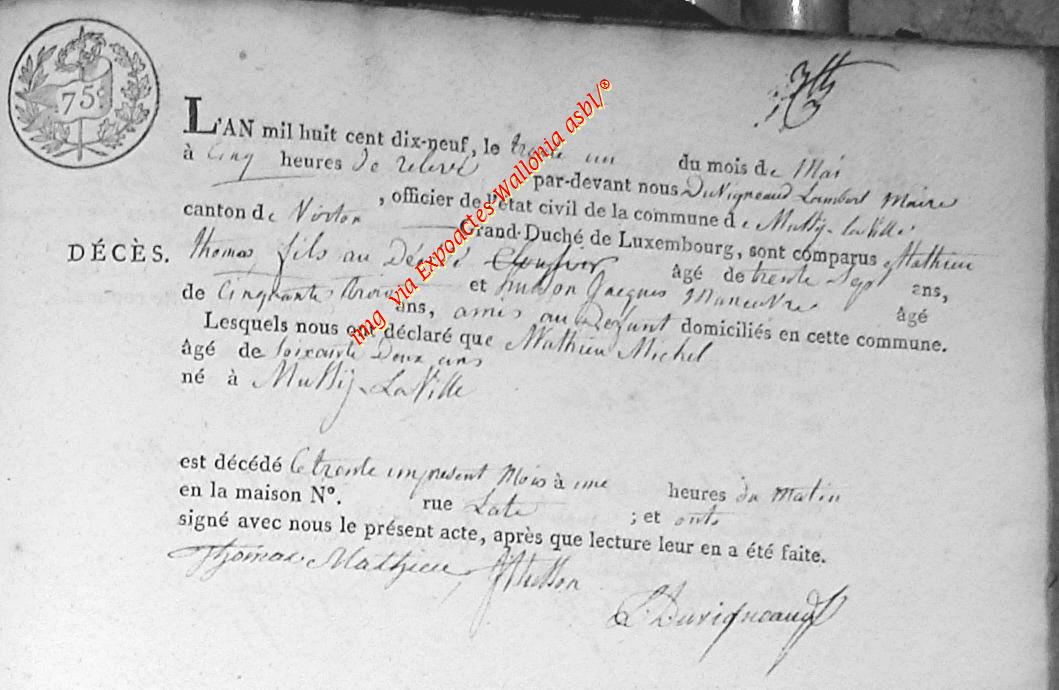 75c
L'AN mil huit cent dix-neuf, le trente un du mois de Mai
à Cinq heures de relevé par-devant nous Duvigneaud Lambert Maire
, officier de l'état civil de la commune de Mussy-laville
canton de Virton Grand-Duché de Luxembourg, sont comparus Mathieu
DÉCÈS.
thomas fils au Décédé âgé de trente Sept ans,
et husson Jacques Manœuvre âgé
de Cinquante trois ans, amis au defunt domiciliés en cette commune.
Lesquels nous ont déclaré que Mathieu Michel
âgé de Soixante Deux ans
né à Mussy-LaVille
est décédé le trente un present Mois à une heures du Matin
en la maison N°. rue ; et onts
signé avec nous le présent acte, après que lecture leur en a été faite.
thomas Mathieu JHusson
L Duvigneaud
img via Expoactes Wallonia asbl/®